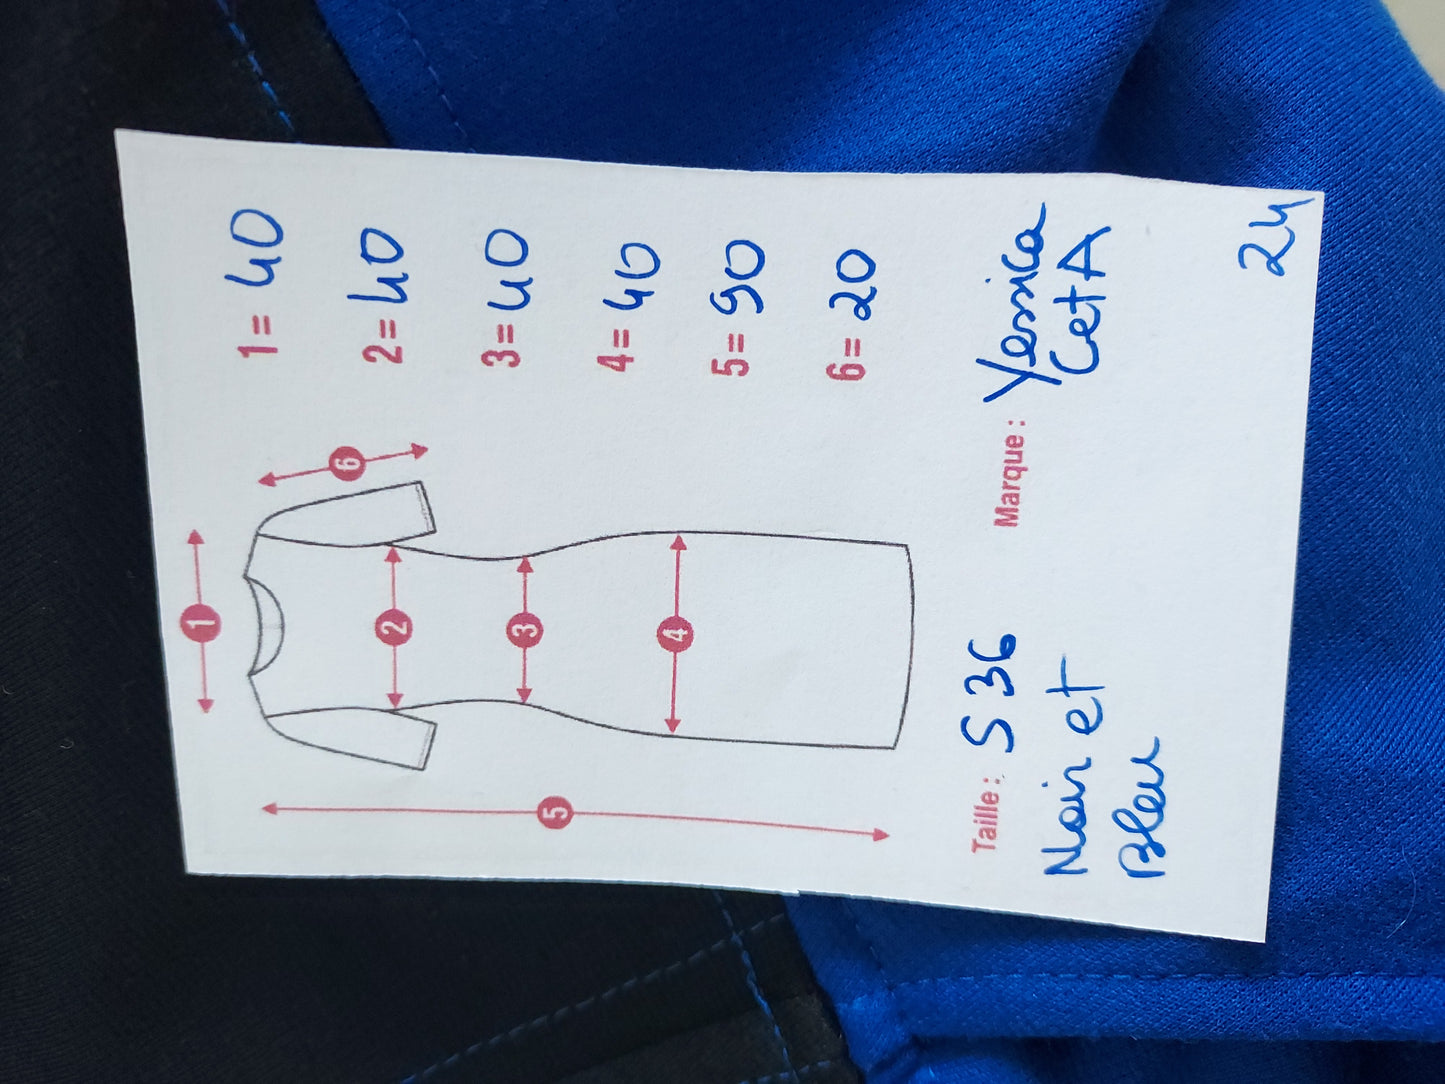 1
2
3
4
5
6
1= 40
2= 40
3= 40
4= 40
5= 90
6= 20
Taille : S 36
Noir et
Bleu
Marque : Yessica
CetA
24